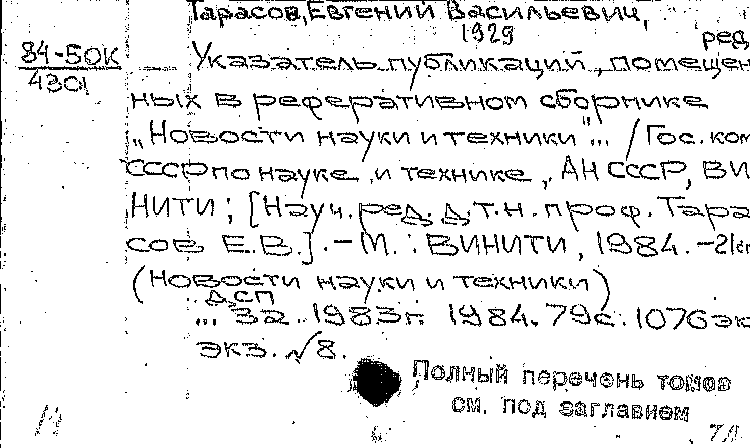 Тарасов, Евгений Васильевич,
1929
ред
84-50К
4301
Указатель публикаций, помещен
ных в реферативном сборнике
"Новости науки и техники"... / Гос. ком
СССР по науке и технике, АН СССР, ВИ
НИТИ; [Науч. ред. д.т.н. проф. Тара
сов Е.В.]. – М. : ВИНИТИ, 1984. –21см
(Новости науки и техники)
ДСП
... За 1983г. 1984. 79с. 1076 эк
экз. √8.
Полный перечень томов
см. под заглавием